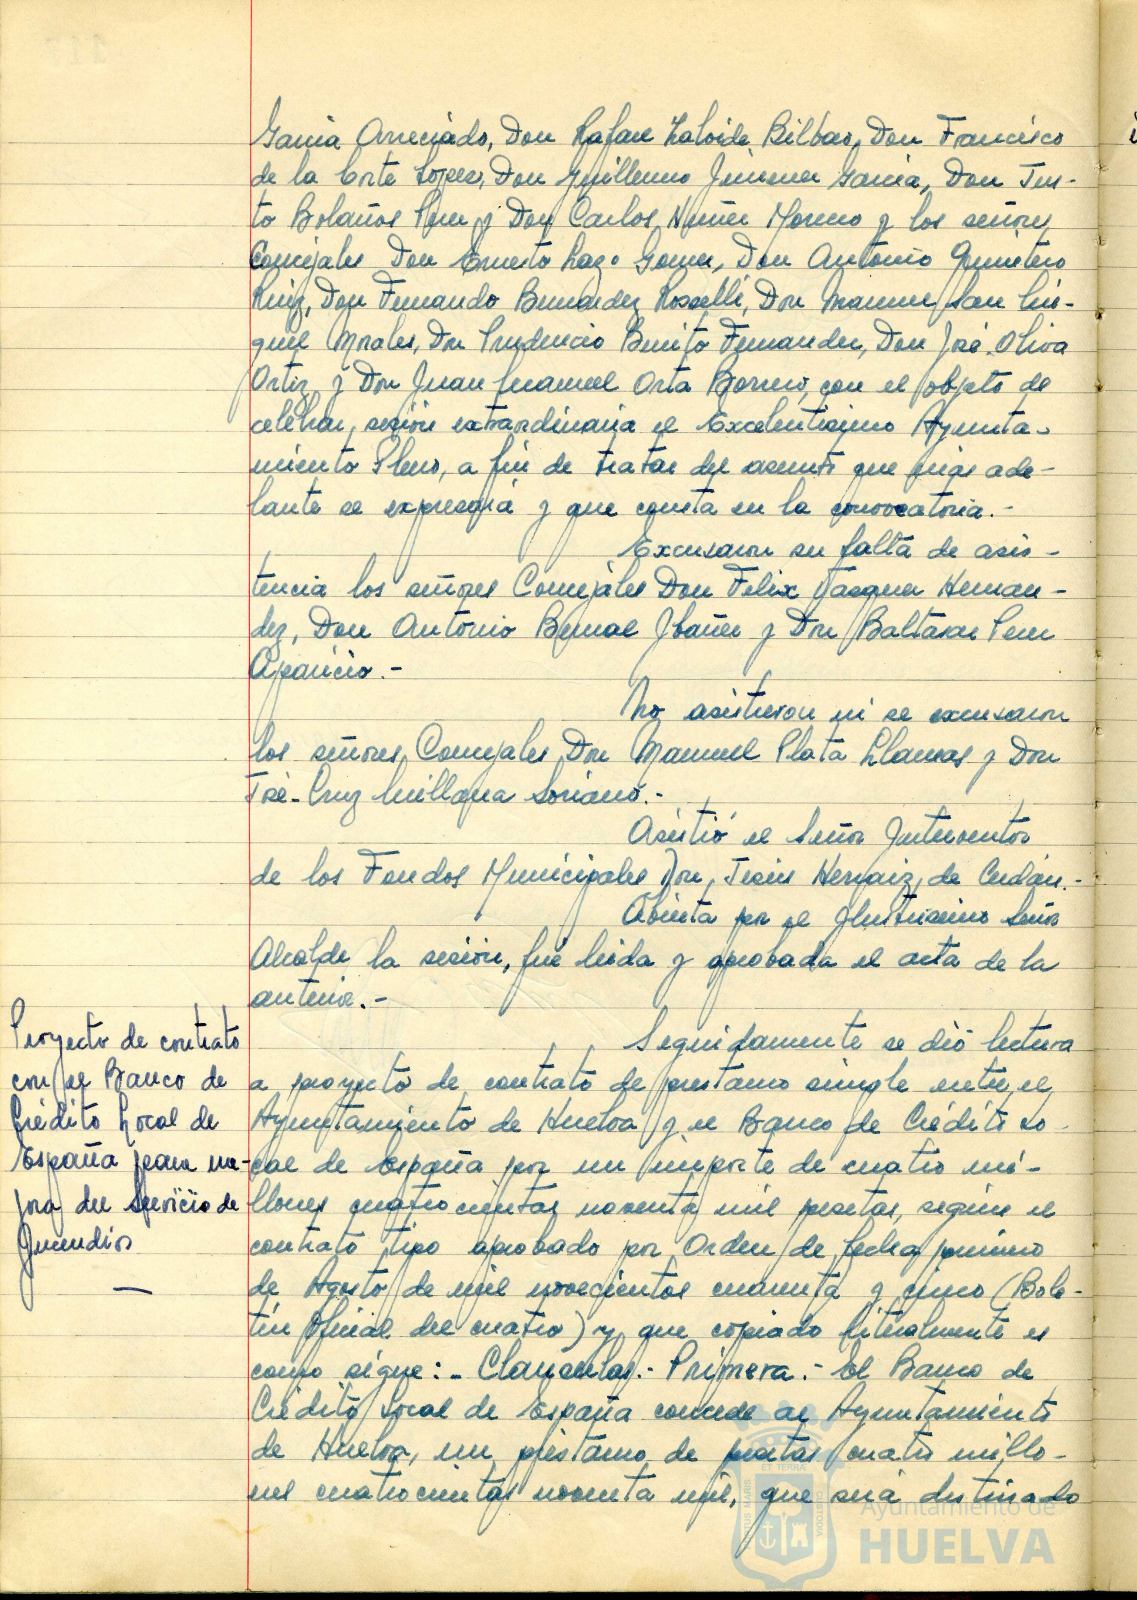 Garcia Arreciado, Don Rafael Laloide Bilbao, Don Francisco
de la Corte Lopez, Don Guillermo Jimenez Garcia, Don Jus-
to Bolaños Perez y Don Carlos Nuñez Moreno y los señores
Concejales Don Ernesto Lazo Gomez, Don Antonio Quintero
Ruiz, Don Fernando Bermudez Rosselli, Don Manuel San Mi-
guel Morales, Don Prudencio Benito Fernandez, Don José Oliva
Ortiz y Don Juan Manuel Orta Borrero, con el objeto de
celebrar sesión extraordinaria el Excelentisimo Ayunta-
miento Pleno, a fin de tratar del asunto que más ade-
lante se expresará y que consta en la convocatoria.-
Excusaron su falta de asis-
tencia los señores Concejales Don Felix Vazquez Hernan-
dez, Don Antonio Bernal Ibañez y Don Baltasar Perez
Aparicio.-
No asistieron ni se excusaron
los señores Concejales Don Manuel Plata Llamas y Don
José-Cruz Millana Soriano.-
Asistió el Señor Interventor
de los Fondos Municipales Don Jesús Hernaiz de Cerdán.-
Abierta por el Ilustrisimo Señor
Alcalde la sesión, fué leida y aprobada el acta de la
anterior.-
Proyecto de contrato
con el Banco de
Crédito Local de
España para me-
jora del Servicio de
Incendios
Seguidamente se dió lectura
a proyecto de contrato de prestamo simple entre el
Ayuntamiento de Huelva y el Banco de Crédito Lo-
cal de España por un importe de cuatro mi-
llones cuatrocientas noventa mil pesetas, según el
contrato tipo aprobado por Orden de fecha primero
de Agosto de mil novecientos cuarenta y cinco (Bole-
tin Oficial del cuatro) y que copiado literalmente es
como sigue:- Clausulas.- Primera.- El Banco de
Crédito Local de España concede al Ayuntamiento
de Huelva, un préstamo de pesetas cuatro millo-
nes cuatrocientas noventa mil, que será destinado
Ayuntamiento de
HUELVA